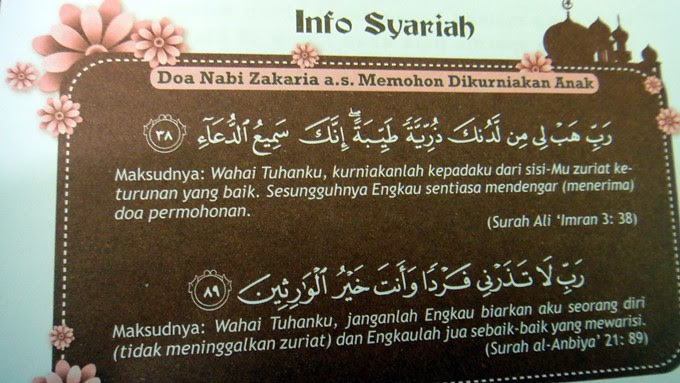 Info Syariah
Doa Nabi Zakaria a.s. Memohon Dikurniakan Anak
رَبِّ هَبْ لِى مِن لَّدُنكَ ذُرِّيَّةً طَيِّبَةً ۖ إِنَّكَ سَمِيعُ الدُّعَآءِ ٣٨
Maksudnya: Wahai Tuhanku, kurniakanlah kepadaku dari sisi-Mu zuriat ke-
turunan yang baik. Sesungguhnya Engkau sentiasa mendengar (menerima)
doa permohonan.
(Surah Ali ‘Imran 3: 38)
رَبِّ لَا تَذَرْنِى فَرْدًا وَأَنتَ خَيْرُ الْوَارِثِينَ ٨٩
Maksudnya: Wahai Tuhanku, janganlah Engkau biarkan aku seorang diri
(tidak meninggalkan zuriat) dan Engkaulah jua sebaik-baik yang mewarisi.
(Surah al-Anbiya’ 21: 89)